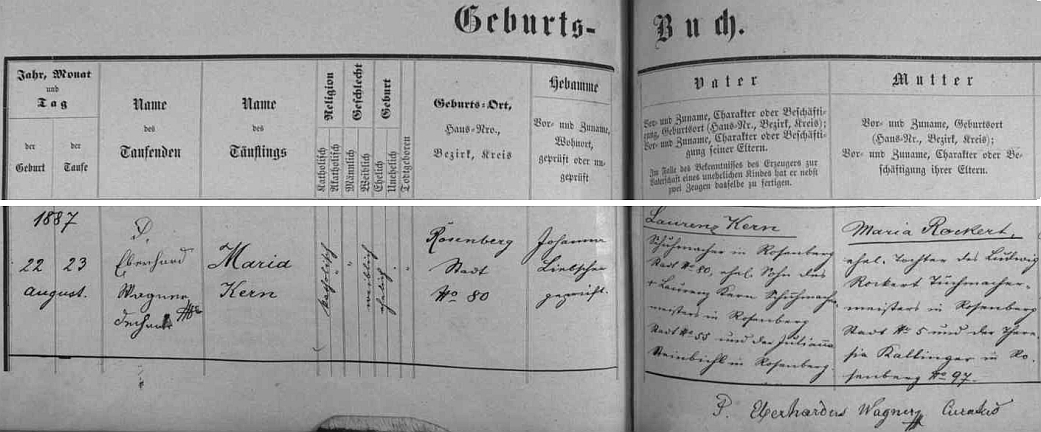 Geburts-Buch.
Jahr, Monat
und
Tag
der
Geburt
der
Taufe
Name
des
Taufenden
Name
des
Täuflings
Religion
Katholisch
Akatholisch
Geschlecht
Männlich
Weiblich
Geburt
Ehelich
Unehelich
Todtgeboren
Geburts-Ort,
Haus-Nro.,
Bezirk, Kreis
Hebamme
Vor- und Zuname,
Wohnort,
geprüft oder un-
geprüft
Vater
Vor- und Zuname, Charakter oder Beschäfti-
gung, Geburtsort (Haus-Nr., Bezirk, Kreis);
Vor- und Zuname, Charakter oder Beschäfti-
gung seiner Eltern.
Im Falle des Bekenntnisses des Erzeugers zur
Vaterschaft eines unehelichen Kindes hat er nebst
zwei Zeugen dasselbe zu fertigen.
Mutter
Vor- und Zuname, Geburtsort
(Haus-Nr., Bezirk, Kreis);
Vor- und Zuname, Charakter oder Be-
schäftigung ihrer Eltern.
1887
22 23
August.
P.
Eberhard
Wagner
Maria
Kern
katholisch
weiblich
ehelich
Rosenberg
Stadt
No 80
Johanna
geprüft.
Laurenz Kern
Schuhmacher in Rosenberg
Stadt No 80, ehel. Sohn des
+ Laurenz Kern Schuhmacher-
meisters in Rosenberg
Stadt No 55 und der Juliana
Steinbichl in Rosenberg.
Maria Rockert,
ehel. Tochter des Ludwig
Rockert Tuchmacher-
meisters in Rosenberg
Stadt No 5 und der There-
sia Kallinger in Ro-
senberg No 97.
P. Eberhardus Wagner Curatus